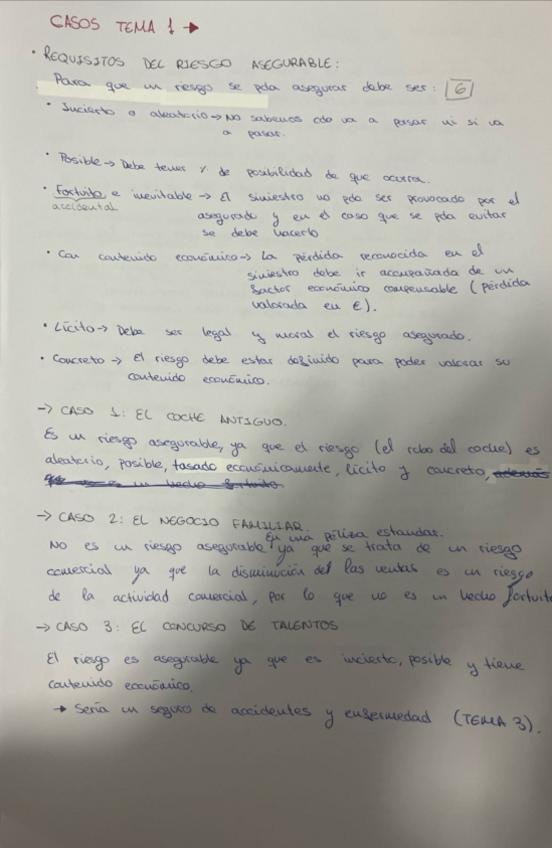 CASOS TEMA 1 →
• REQUISITOS DEL RIESGO ASEGURABLE:
Para que un riesgo se pda asegurar debe ser: 6
• Incierto o aleatorio → No sabemos cdo va a pasar ni si va
a pasar.
• Posible → Debe tener % de posibilidad de que ocurra.
• Fortuito e inevitable → El siniestro no pdo ser provocado por el
accidental
asegurado y en el caso que se pda evitar
se debe hacerlo
• Con contenido económico → La pérdida reconocida en el
siniestro debe ir acompañada de un
factor económico compensable (pérdida
valorada en €).
• Lícito → Debe ser legal y moral el riesgo asegurado.
• Concreto → El riesgo debe estar definido para poder valorar su
contenido económico.
→ CASO 1: EL COCHE ANTIGUO.
Es un riesgo asegurable, ya que el riesgo (el robo del coche) es
aleatorio, posible, tasado económicamente, lícito y concreto, además
que es un hecho fortuito
→ CASO 2: EL NEGOCIO FAMILIAR.
En una póliza estandar.
No es un riesgo asegurable ya que se trata de un riesgo
comercial ya que la disminución del las ventas es un riesgo
de la actividad comercial, por lo que no es un hecho fortuito
→ CASO 3: EL CONCURSO DE TALENTOS
El riesgo es asegurable ya que es incierto, posible y tiene
contenido económico.
→ Sería un seguro de accidentes y enfermedad (TEMA 3).